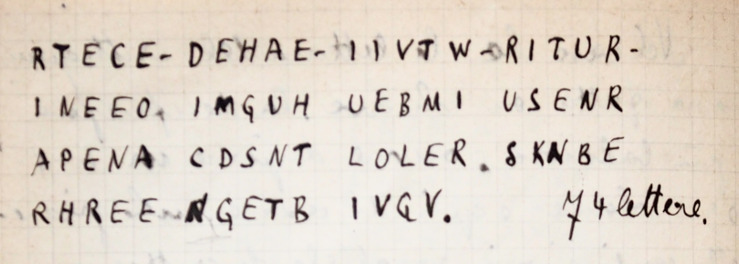 RTECE- DEHAE- IIVTW- RITUR-
INEEO. IMGUH UEBMI USENR
APENA CDSNT LOLER. SKNBE
RHREE NGETB IVGV. 74 lettere.